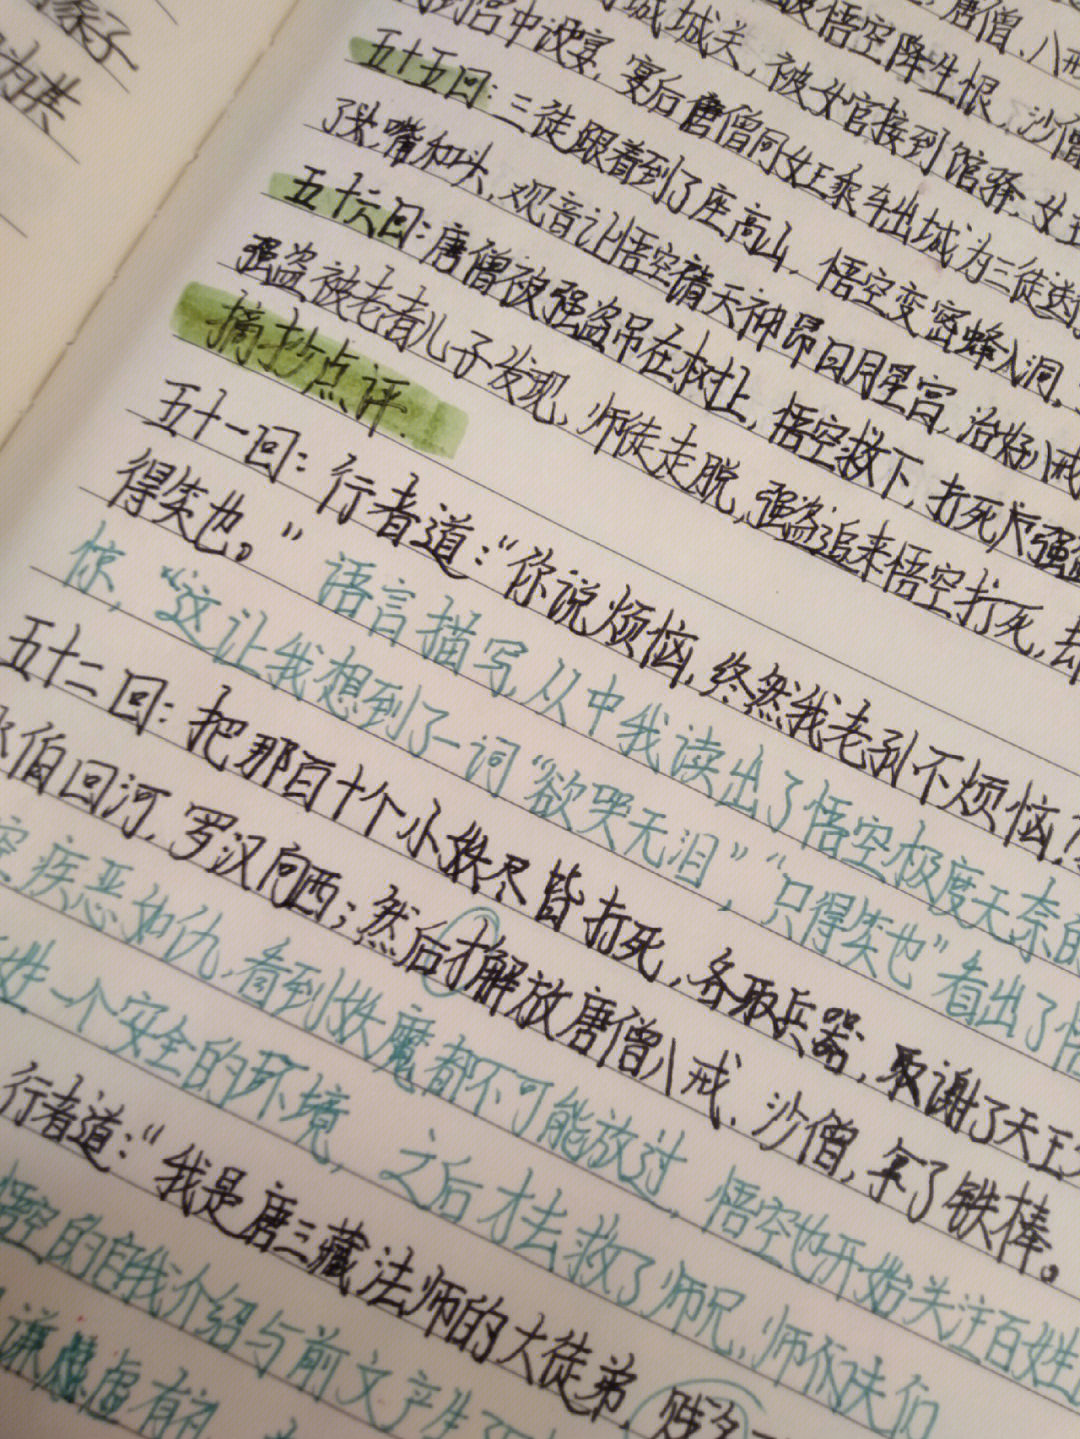 缘子
为共
唐僧、八戒
被悟空降生恨，沙僧
城城关，被女官接到馆驿，女王
到宫中设宴，宴后唐僧同女王乘车出城为三徒送
五十五回：三徒跟着到了座高山，悟空变蜜蜂入洞，
了张嘴和头，观音让悟空请天神昴日月星宫，治好八戒
五十六回：唐僧被强盗吊在树上，悟空救下，打死户强盗
强盗被老者儿子发现，师徒走脱，强盗追来悟空打死，却
摘抄点评
五十一回：行者道：“你说烦恼，终然我老孙不烦恼！
得笑也。” 语言描写，从中我读出了悟空极度无奈的
惊，“这让我想到了一词“欲哭无泪”，“只得笑也”看出了悟
五十二回：把那百十个小妖尽皆打死，各取兵器，取谢了天王
水伯回河，罗汉向西；然后才解放唐僧八戒、沙僧，拿了铁棒。
疾恶如仇，看到妖魔都不可能放过，悟空也开始关注百姓
姓一个安全的环境，之后才去救了师兄，师傅夫们
行者道：“我是唐三藏法师的大徒弟，贱名
悟空的自我介绍与前文产生了
谦虚有礼